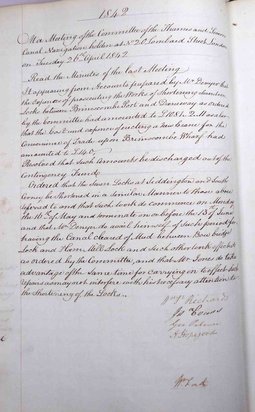 1842
At a Meeting of the Committee of the Thames and Severn
Canal Navigation holden at No 20 Lombard Street London
on Tuesday 26th April 1842
Read the Minutes of the last Meeting
It appearing from Accounts prepared by Mr Denyer that
the Expences of proceeding the Works of Shortening Seventeen
Locks between Brimscomb Port and Daneway as ordered
by the Committee had amounted to £681.2. and also
that the Cost and expence of erecting a new Crane for the
Convenience of Trade upon Brimscomb Wharf had
amounted to
Resolved that such amounts be discharged out of the
Contingency Fund
Ordered that the Locks at Siddington and South
Cerney be Shortened in a Similar Manner to those above
referred to and that such work do commence on Monday
the May and terminate on or before the June
and that Mr Denyer do avail himself of such period for
having the Canal cleared of Mud between Bow bridge
Lock and Ham Mill Lock and such other work effected
as ordered by the Committee and that Mr Jones do take
advantage of the same time for carrying on to effect such
repairs as may not interfere with his necessary attention to
the Shortening of the Locks
Richards